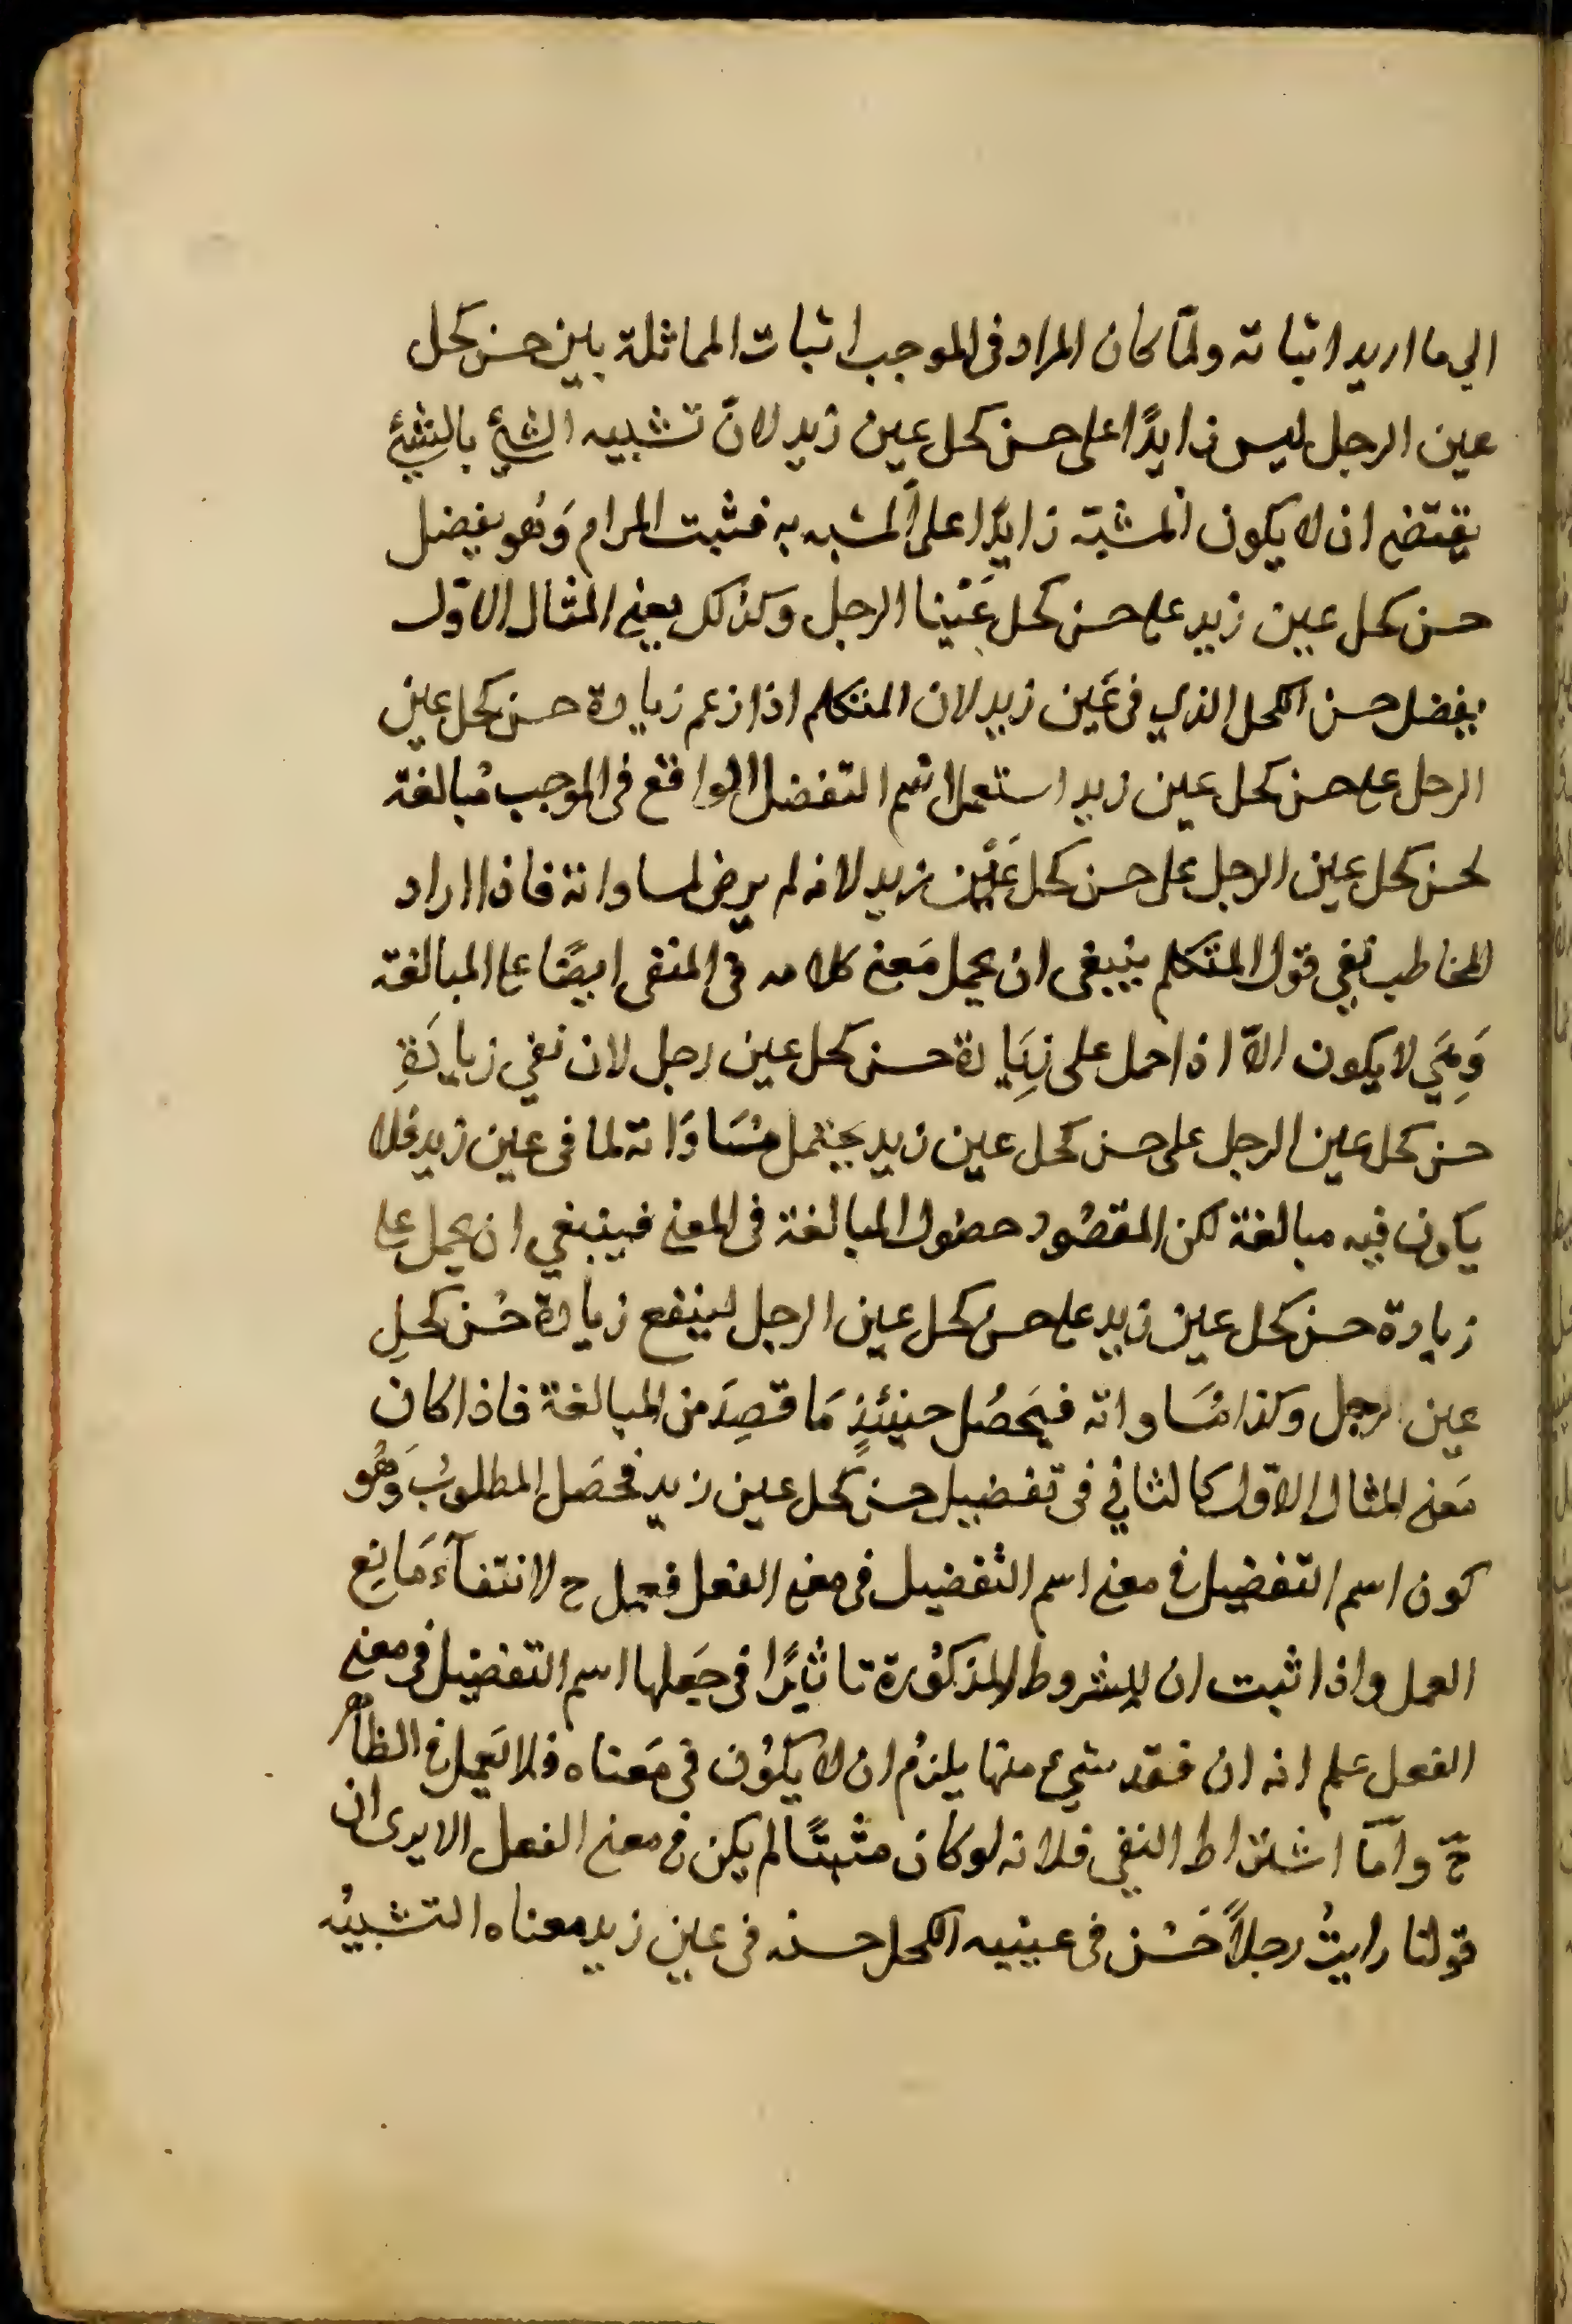 الي ما اريد اثباته ولمّا كان المراد فى الموجب اثبات المماثلة بين حسن كحل
عين الرجل ليس زايدًا على حسن كحل عين زيد لانّ تشبيه الشئ بالشئ
يقتضى ان لا يكون المشبّه زايدًا على المشبه به فثبت المرام وَهُو يفضل
حسن كحل عين زيد على حسن كحل عَيْنيا الرجل وَكذلك يعنى المثال الاوّل
يفضل حسن الكحل الذي فى عَين زيد لان المتكلم اذا زعم زيادة حسن كحل عين
الرجل على حسن كحل عين زيد استعمل اسم التفضل الواقع فى الموجب مُبالغة
لحسن كحل عين الرجل على حسن كحل عَين زيد لانه لم يرض لمساواته فاذا اراد
المخاطب نفي قول المتكلم ينبغى ان يحمل مَعنى كلامه فى المنفى ايضًا على المبالغة
وَهِيَ لا يكون الاّ اذا حمل على زيَادة حسن كحل عين رجل لان نفي زيادَةِ
حسن كحل عين الرجل على حسن كحل عين زيد يحتمل مسَاوَاته لما فى عين زيد فلا
يكون فيه مبالغة لكن المقصُود حصُول المبالغة فى المعنى فينبغي ان يحمل على
زيادة حسن كحل عين زيد على حسن كحل عين الرجل لينفع زيادة حُسن كحلِ
عين الرجل وكذا مسَاواته فيَحصُل حينئذٍ مَا قصِدَ من المبالغة فاذا كان
مَعنى المثال الاوّل كالثاني فى تفضيل حسن كحل عين زيد فحصَل المطلوبُ وَهُو
كون اسم التفضيل فى معنى اسم التفضيل فى معنى الفعل فيعمل ح لانتفآء مَانِع
العمل واذا ثبت ان للشروط المذكوُرة تاثيرًا فى جَعلها اسم التفضيل فى معنى
الفعل علم انه ان فقد شيء منها يلزمُ ان لا يكوُن فى مَعناه فلا يَعمل فى الظاهر
حّ وامّا اشتراط النفى فلانه لو كان مثبتًا لم يكن فى معنى الفعل الا يرى ان
قولنا رايتُ رجلاً حَسُن فى عينيه الكحل حسنه فى عين زيد معناه التشبيُه